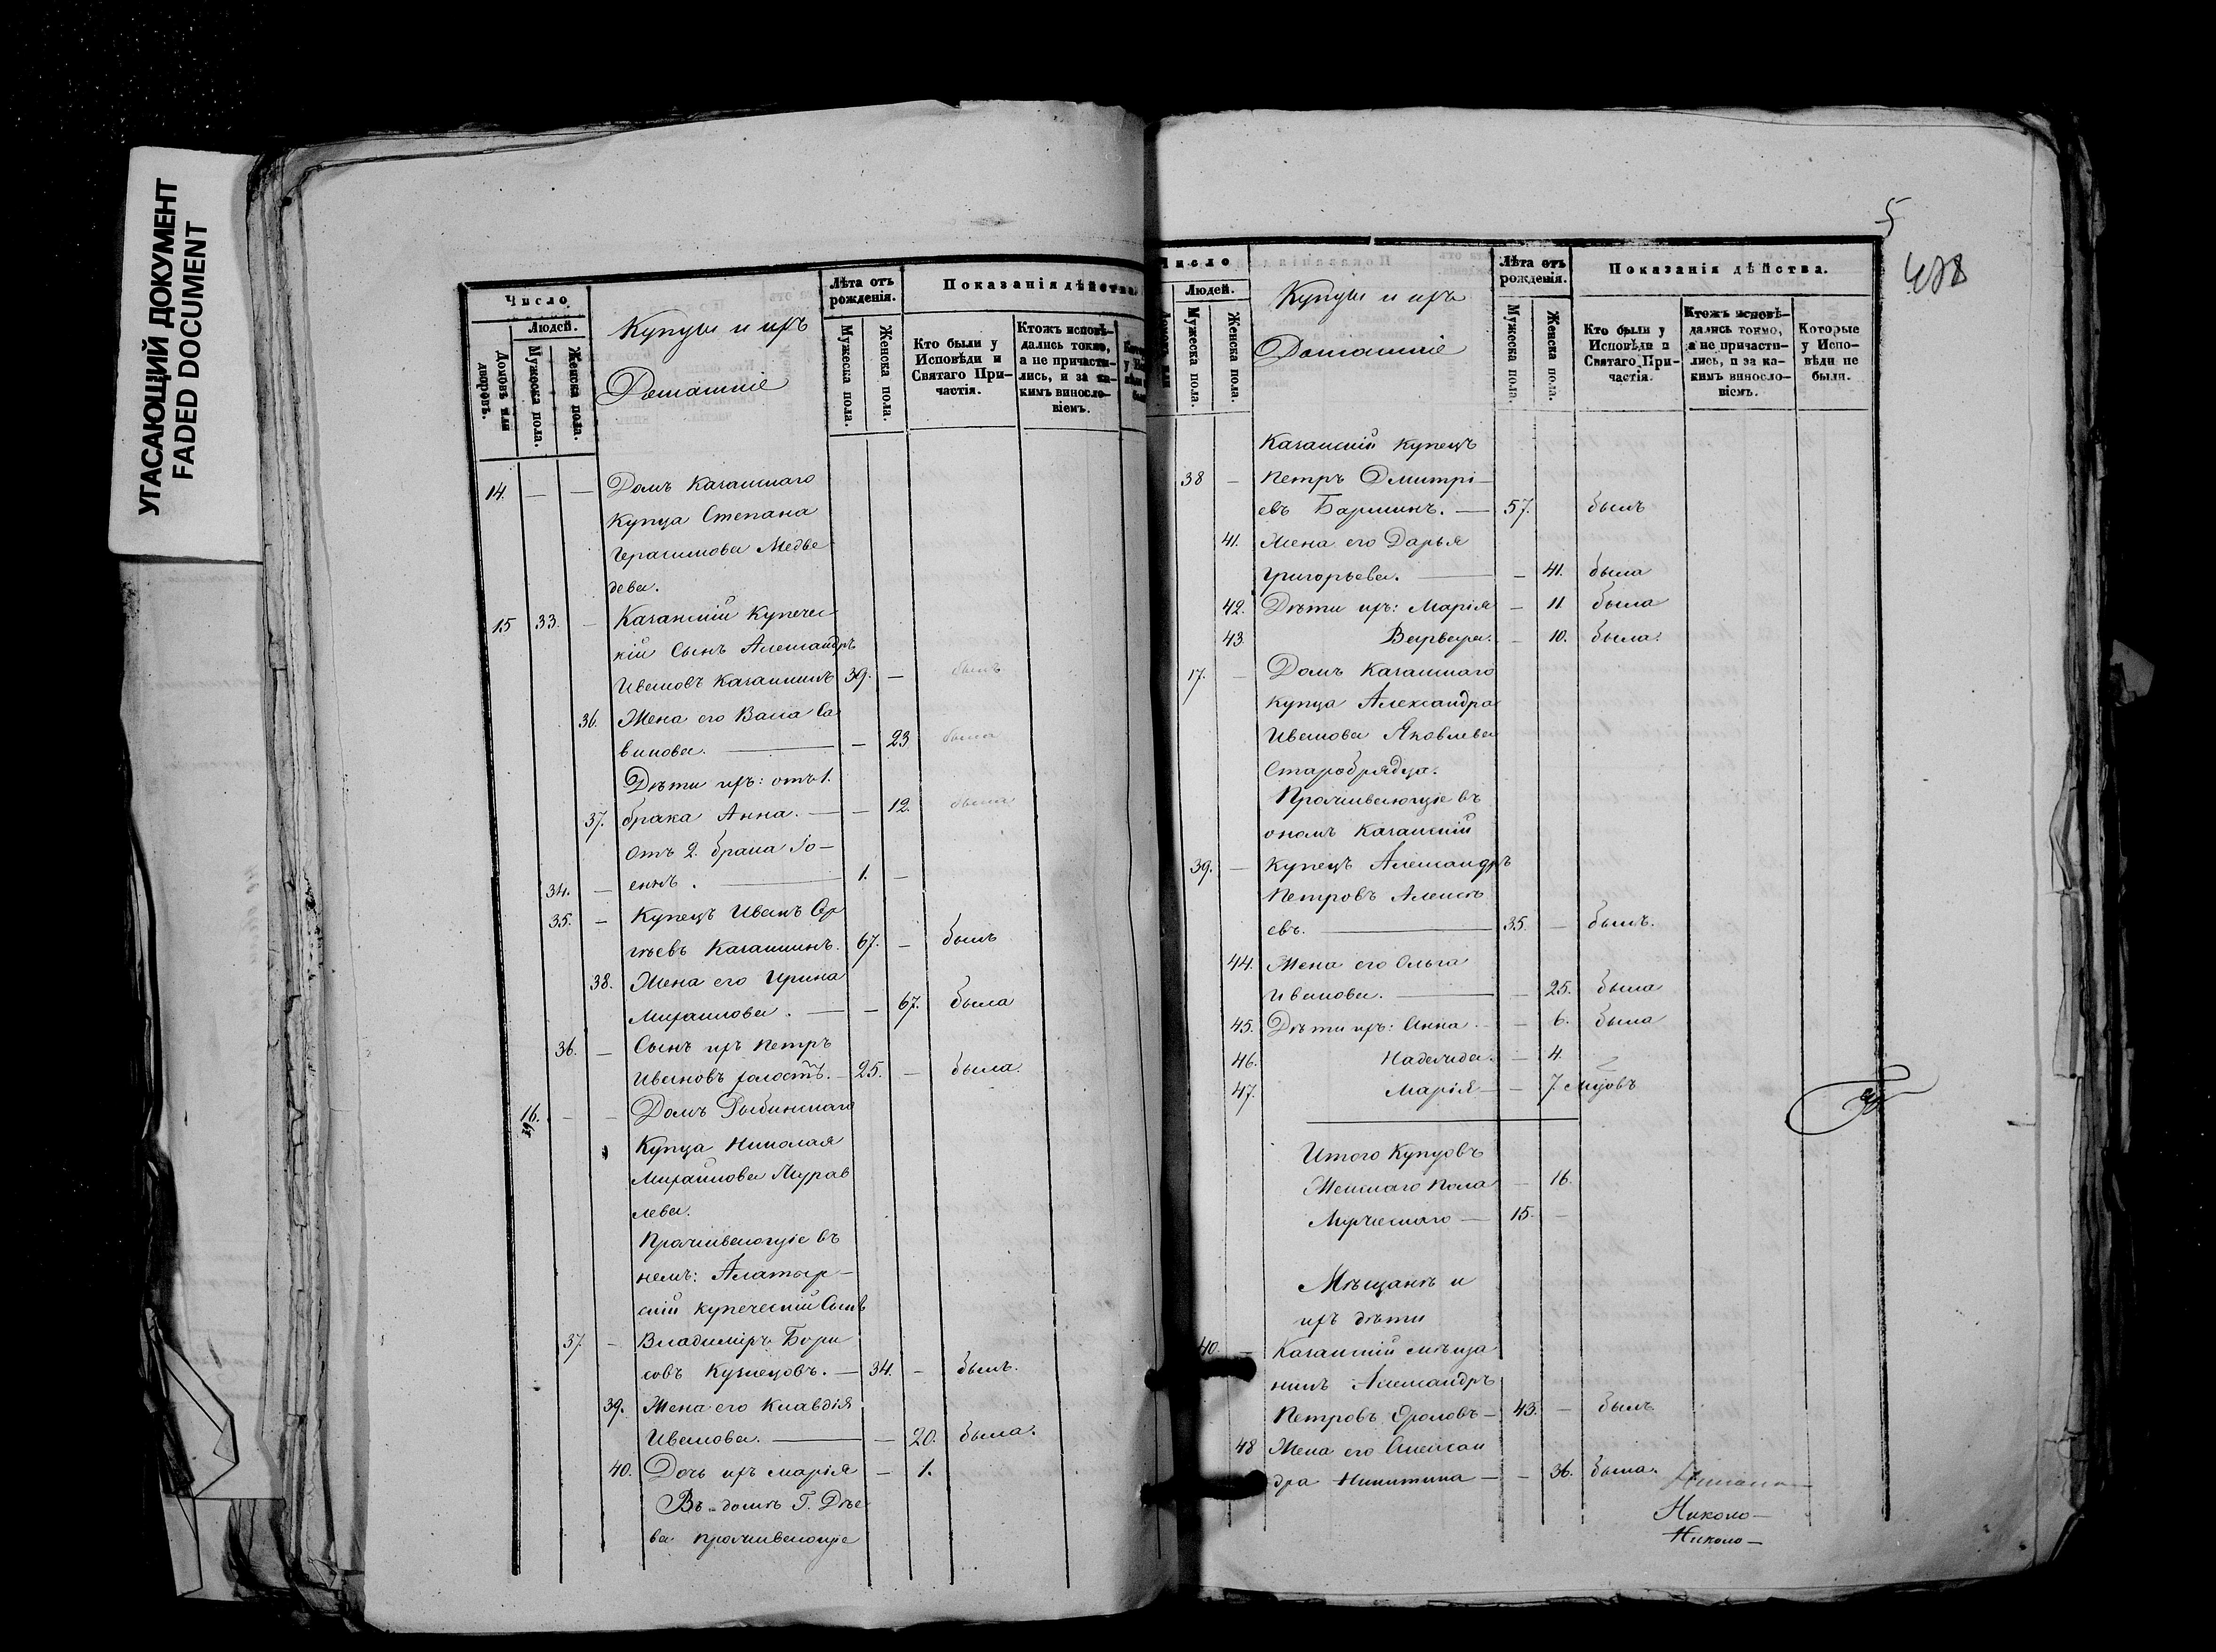 УГАСАЮЩИЙ ДОКУМЕНТ
FADED DOCUMENT
Число
Людей.
Домовъ или дворовъ.
Мужеска пола.
Женска пола.
Купцы и ихъ
Домашніе
Лѣта отъ рожденія.
Мужеска пола.
Женска пола.
Показанія дѣйства.
Кто были у Исповѣди и Святаго При-частія.
Ктожъ исповѣ-дались токмо, а не причасти-лись, и за ка-кимъ винословіемъ.
14. — — Домъ Казанскаго
Купца Степана
Герасимова Медве
дева.
15 33. — Казанскій Купечес
кій Сынъ Александръ
Ивановъ Казанкинъ 39. — былъ
36. Жена его Васса Са
винова. — — 23 была
Дѣти ихъ: отъ 1.
37. брака Анна. — — 12. была
Отъ 2. брака
34. — 1. —
35. — Купецъ Иванъ Сер
гѣевъ Казанкинъ. 67. — былъ
38. Жена его Ирина
Михаилова. — — 67. была
36. — Сынъ ихъ Петръ
Ивановъ холостъ. — 25. — была.
16. — — Домъ Рыбинскаго
Купца Николая
Михаилова Журав
лева.
Проживающіе въ
немъ: Алатыр-
скій купеческій Сынъ
37. — Владиміръ Бори
совъ Кузнецовъ. — 34. — былъ.
39. Жена его Клавдія
Иванова. — — 20. была.
40. Дочь ихъ Марія — 1.
Въ домѣ Г.
ва проживающіе
5
Число
Людей.
Мужеска пола.
Женска пола.
Купцы и ихъ
Домашніе
Лѣта отъ рожденія.
Мужеска пола.
Женска пола.
Показанія дѣйства.
Кто были у Исповѣди и Святаго При-частія.
Ктожъ исповѣ-дались токмо, а не причасти-лись, и за ка-кимъ винословіемъ.
Которые у Испо-вѣди не были.
Казанскій Купецъ
38 — Петръ Дмитрі-
евъ — 57. былъ
41. Жена его Дарья
Григорьева. — — 41. была
42. Дѣти ихъ: Марія — 11. была
43. Варвара. — 10. была.
17. — Домъ Казанскаго
Купца Александра
Иванова Яковлева
Старобрядца.
Проживающіе въ
ономъ Казанскій
39. — Купецъ Александръ
Петровъ Алексѣ
евъ. — 35. — былъ.
44. Жена его Ольга
Иванова. — — 25. была
45. Дѣти ихъ: Анна. — 6. была
46. Надежда. — 4.
47. Марія — — 7 мѣсцовъ
Итого Купцовъ
Женскаго Пола — 16.
Мужескаго — 15. —
Мѣщанъ и
ихъ дѣти
40. — Казанскій мѣща
нинъ Александръ
Петровъ Фроловъ — 43. — былъ
48 Жена его Алексан
дра Никитина — — 36. была.
Николо—
Николо—